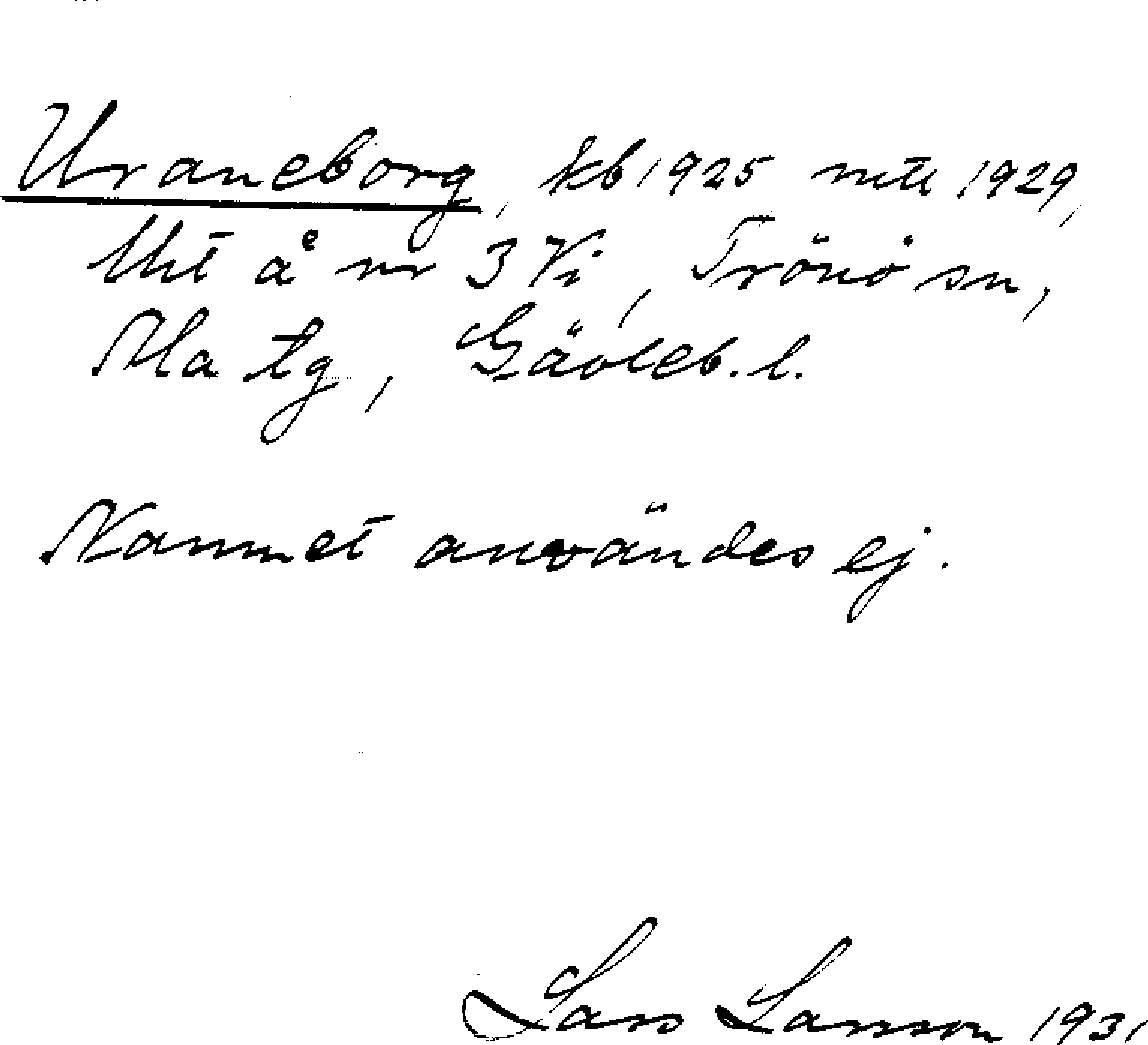 Uraneborg, kb 1925 mtl 1929,
lht å nr 3 Vi, Trönö sn,
Ala tg, Gävleb. l.
Namnet användes ej.
Lars Larsson 1931